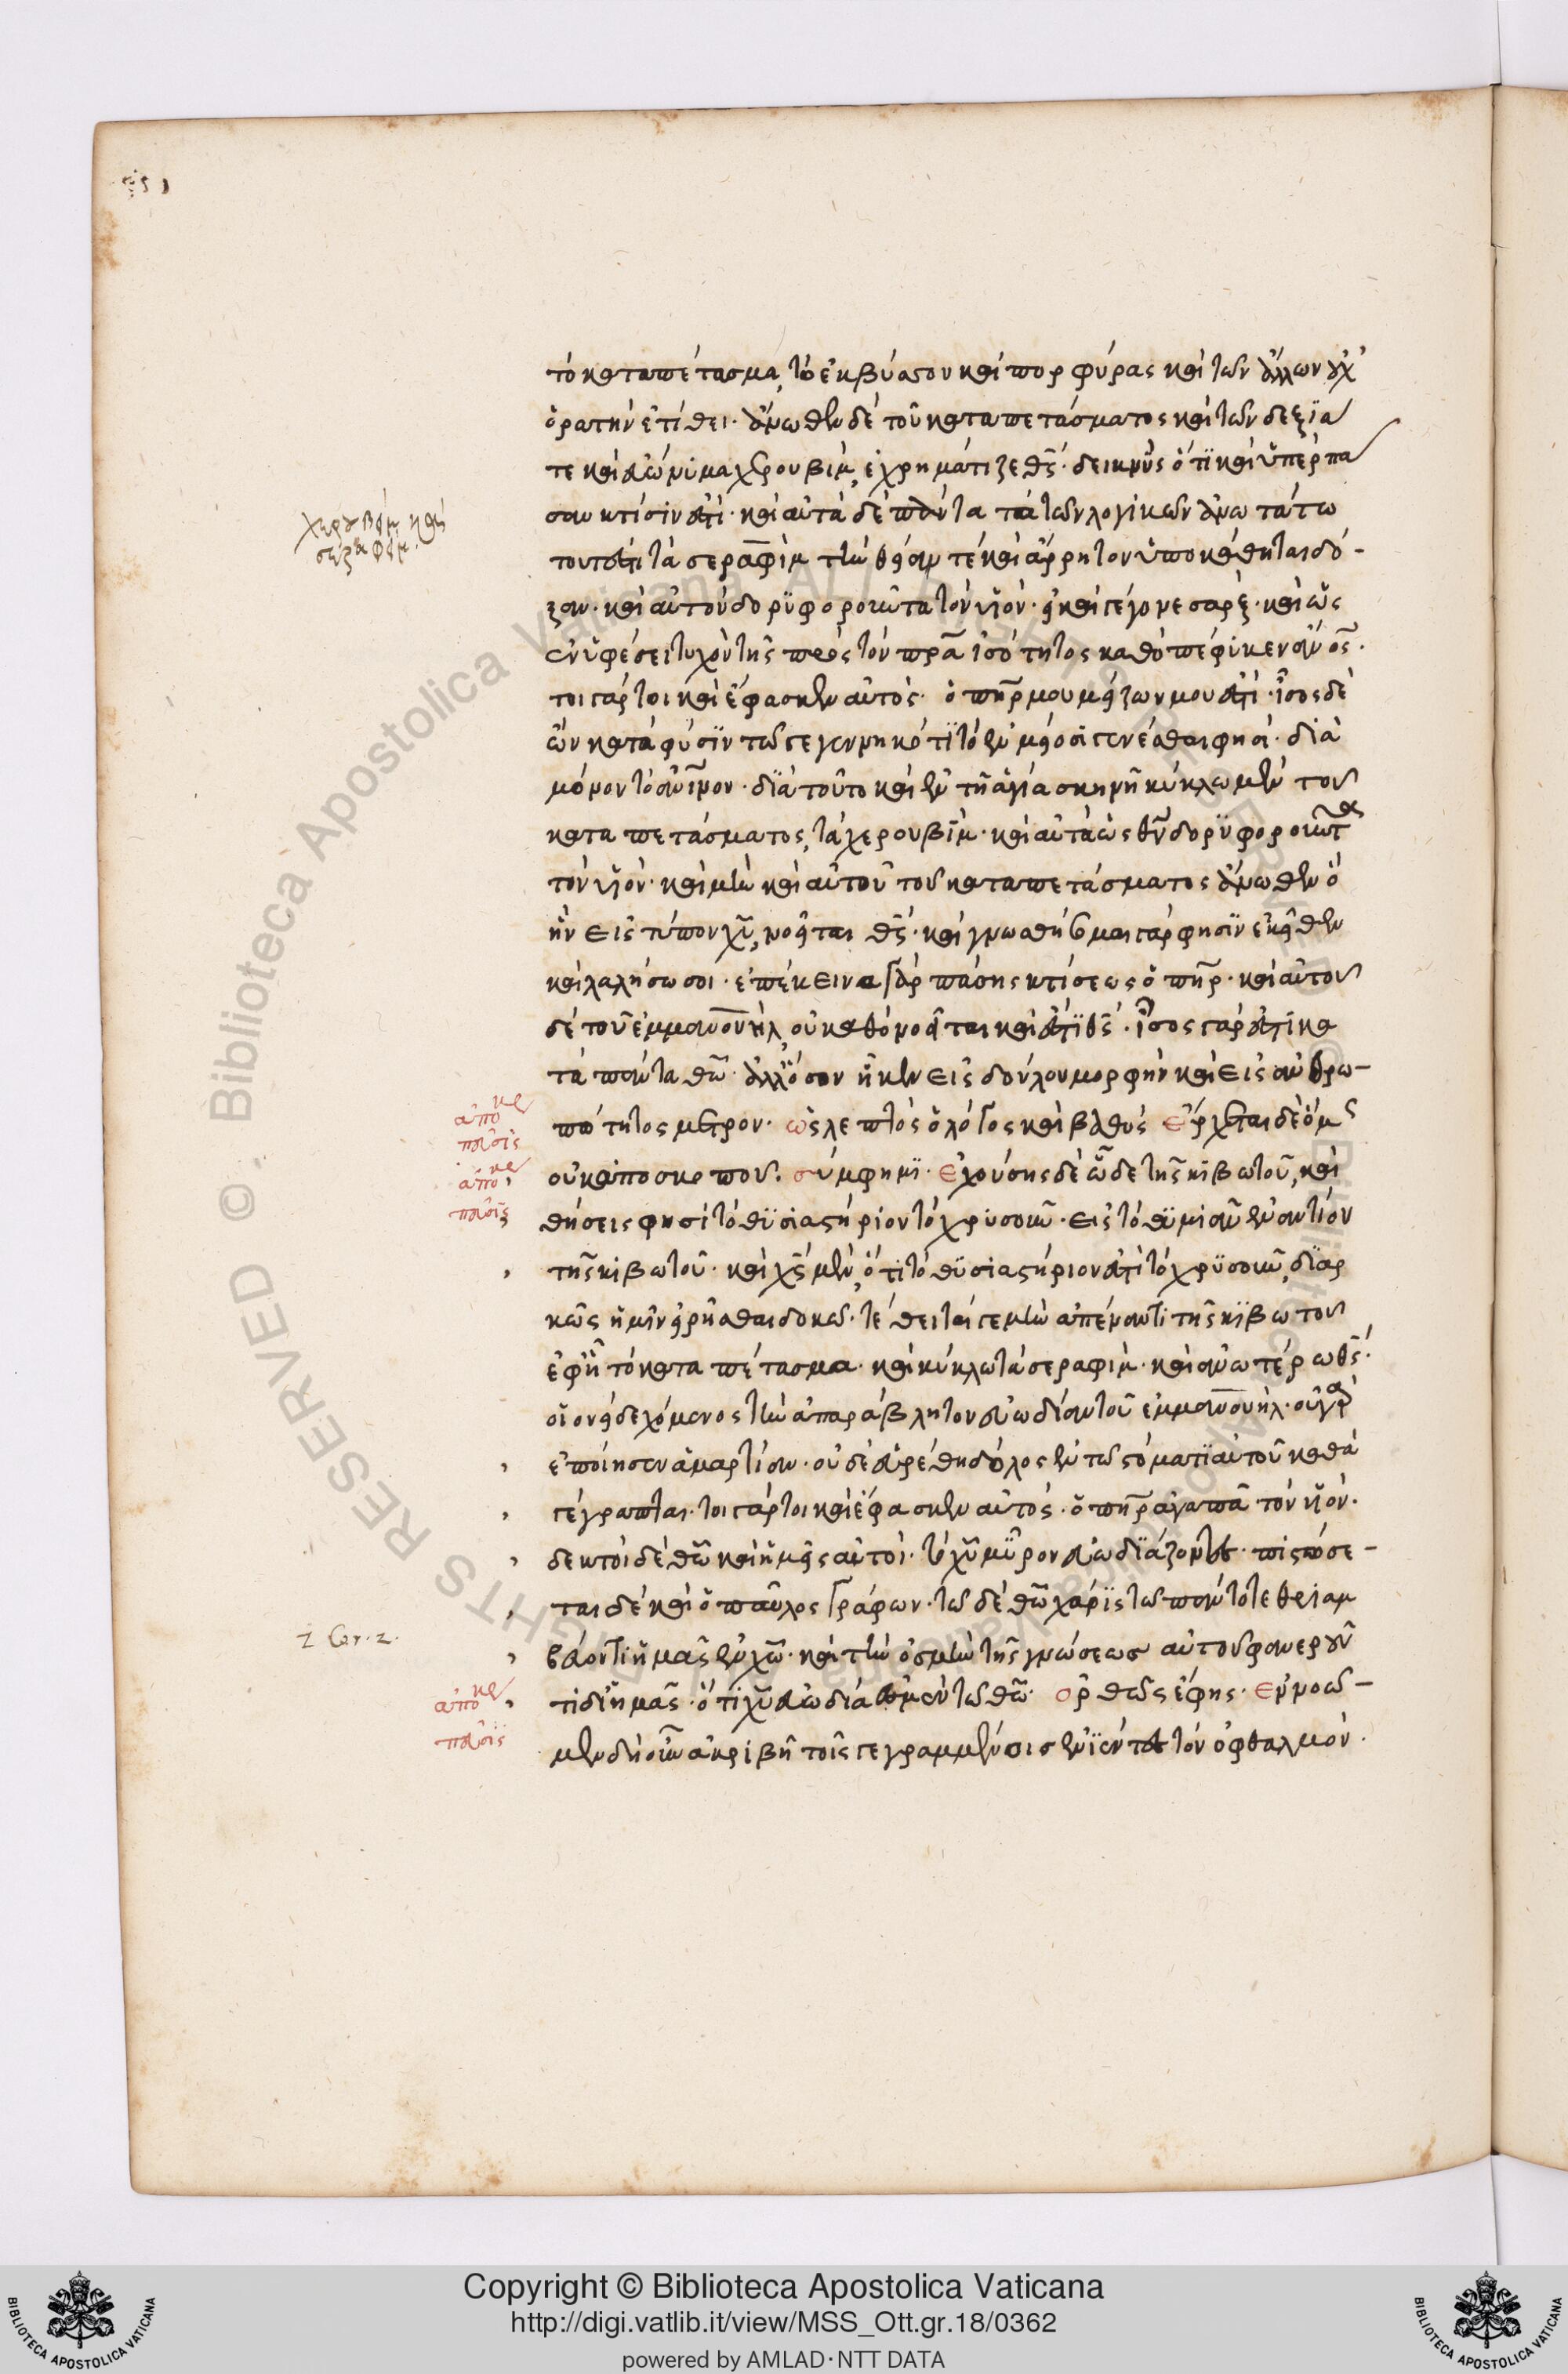 τὸ καταπέτασμα, τὸ ἐκ βύσσου καὶ πορφύρας καὶ τῶν ἄλλων οὐχ
ὁρατὴν ἐτίθει· ἄνωθεν δὲ τοῦ καταπετάσματος καὶ τῶν δεξιὰ
χερουβὶμ καὶ
σεραφίμ.
τε καὶ εὐώνυμα χερουβιμ, ἐχρημάτιζε θς· δεικνὺς ὅτι καὶ ὑπὲρ πᾶ
σαν κτίσιν ἐστί· καὶ αὐτὰ δὲ πάντα τὰ τῶν λογικῶν ἀνωτάτω
τουτέστι τὰ σεραφὶμ τὴν θείαν τὲ καὶ ἄρρητον ὑποκάθηται δό-
ξαν· καὶ αὐτὸν δορυφοροῦντα τὸν υἱόν· εἰ καὶ γέγονε σάρξ· καὶ ὡς
ἐν ὑφέσει τυχὸν τῆς πρὸς τὸν πρα ἰσότητος καθὸ πέφηκεν ἄνος·
τοιγάρτοι καὶ ἔφασκεν αὐτός· ὁ πηρ μου μείζων μου ἐστί· ἴσος δὲ
ὢν κατὰ φύσιν τῶ γεγεννηκότι τὸ ἐν μείοσι γενέσθαι φησί· διὰ
μόνον τὸ ἀνινον· διὰ τοῦτο καὶ ἐν τῆ ἁγία σκηνῆ κύκλω μὲν τοῦ
καταπετάσματος, τὰ χερουβὶμ· καὶ αὐτὰ ὡς θν δορυφοροῦντα
τὸν υἱόν· καὶ μὴν καὶ αὐτοῦ τοῦ καταπετάσματος ἄνωθεν ὃ
ἦν εἰς τύπον χυ, νοεῖται θς· καὶ γνωσθήσομαι γάρ φησὶν ἐκεῖθεν
καὶ λαλήσω σοι· ἐπέκεινα γὰρ πάσης κτίσεως ὁ πηρ· καὶ αὐτοῦ
δὲ τοῦ ἐμμανουὴλ, οὐ καθὸ νοεῖται καὶ ἐστὶ θς· ἴσος γάρ ἐστι κα
τὰ πάντα θω· ἀλλ' ὅσον ἧκεν εἰς δούλου μορφὴν καὶ εἰς ἀνθρω-
πότητος μέτρον· ὡς λεπτὸς ὁ λόγος καὶ βαθύς ἔρχεται δὲ ὅμως
οὐκ ἀπο σκοποῦ. σύμφημι· ἐχούσης δὲ ὧδε τῆς κιβωτοῦ, καὶ
θήσεις φησὶ τὸ θυσιαστήριον τὸ χρυσοῦν· εἰς τὸ θυμιᾶν ἐναντίον
τῆς κιβωτοῦ· καὶ χς μὲν, ὅτι τὸ θυσιαστήριον ἐστὶ τὸ χρυσοῦν, διαρ
κῶς ἡμῖν εἰρῆσθαι δοκῶ· τέθειταί γε μὴν ἀπέναντι τῆς κιβωτοῦ
ἐφ' ἣ τὸ καταπέτασμα· καὶ κύκλω τὰ σεραφιμ· καὶ ἀνωτέρω θς·
οἱονεὶ δεχόμενος τὴν ἀπαράβλητον εὐωδίαν τοῦ ἐμμανουήλ· οὐ γὰρ
ἐποίησεν ἁμαρτίαν· οὐδὲ εὑρέθη δόλος ἐν τῶ στόματι αὐτοῦ καθὰ
γέγραπται· τοιγάρτοι καὶ ἔφασκεν αὐτός· ὁ πηρ ἀγαπᾶ τὸν υἱόν·
δεκτοὶ δὲ θω καὶ ἡμεῖς αὐτοὶ· τὸ χυ μύρον εὐωδιάζοντες· πιστώσε-
ται δὲ καὶ ὁ παῦλος γράφων· τῶ δὲ θω χάρις τῶ πάντοτε θριαμ
2 Cor. 2.
βεύοντι ἡμᾶς ἐν χω· καὶ τὴν ὀσμὴν τῆς γνώσεως αὐτοῦ φανεροῦν
τι δι' ἡμᾶς· ὅτι χυ εὐωδία ἐσμὲν τῶ θω· ὀρθῶς ἔφης· ἐννοῶ-
μεν δὴ οὖν ἀκριβῆ τοῖς γεγραμμένοις ἐνϊέντες τὸν ὀφθαλμόν.
Copyright © Biblioteca Apostolica Vaticana
http://digi.vatlib.it/view/MSS_Ott.gr.18/0362
powered by AMLAD·NTT DATA
BIBLIOTECA APOSTOLICA VATICANA
BIBLIOTECA APOSTOLICA VATICANA